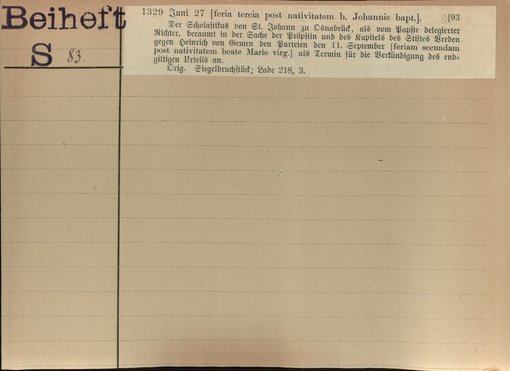 Beiheft
S 83
1329 Juni 27 [feria tercia post nativitatem b. Johannis bapt.]. [93
Der Scholastikus von St. Johann zu Osnabrück, als vom Papste delegierter
Richter, beraumt in der Sache der Pröpstin und des Kapitels des Stiftes Vreden
gegen Heinrich von Gemen den Parteien den 11. September [feriam secundam
post nativitatem beate Marie virg.] als Termin für die Verkündigung des end-
giltigen Urteils an.
Orig. Siegelbruchstück; Lade 218, 3.